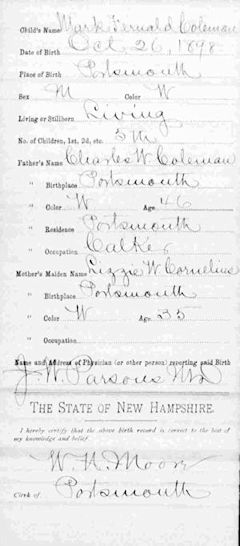 Child's Name Mark Fernald Coleman
Date of Birth Oct 26, 1898
Place of Birth Portsmouth
Sex M Color W
Living or Stillborn Living
No. of Children, 1st, 2d, etc. 5th
Father's Name Charles W Coleman
" Birthplace Portsmouth
" Color W Age 46
" Residence Portsmouth
" Occupation Calker
Mother's Maiden Name Lizzie W Cornelius
" Birthplace Portsmouth
" Color W Age 35
" Occupation
Name and Address of Physician (or other person) reporting said Birth
J. W. Parsons MD
THE STATE OF NEW HAMPSHIRE.
I hereby certify that the above birth record is correct to the best of
my knowledge and belief
W. H. Moore
Clerk of Portsmouth